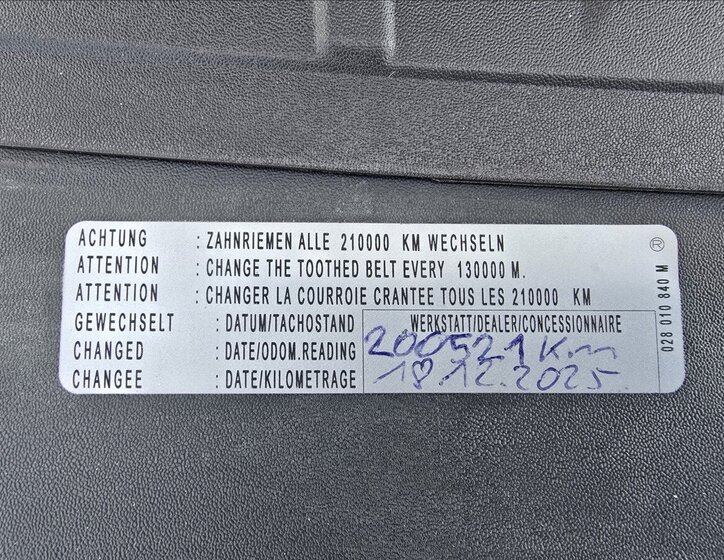 ACHTUNG : ZAHNRIEMEN ALLE 210000 KM WECHSELN
ATTENTION : CHANGE THE TOOTHED BELT EVERY 130000 M.
ATTENTION : CHANGER LA COURROIE CRANTEE TOUS LES 210000 KM
GEWECHSELT : DATUM/TACHOSTAND WERKSTATT/DEALER/CONCESSIONNAIRE
CHANGED : DATE/ODOM.READING 200521 Km
CHANGEE : DATE/KILOMETRAGE 18.12.2025
®
028 010 840 M